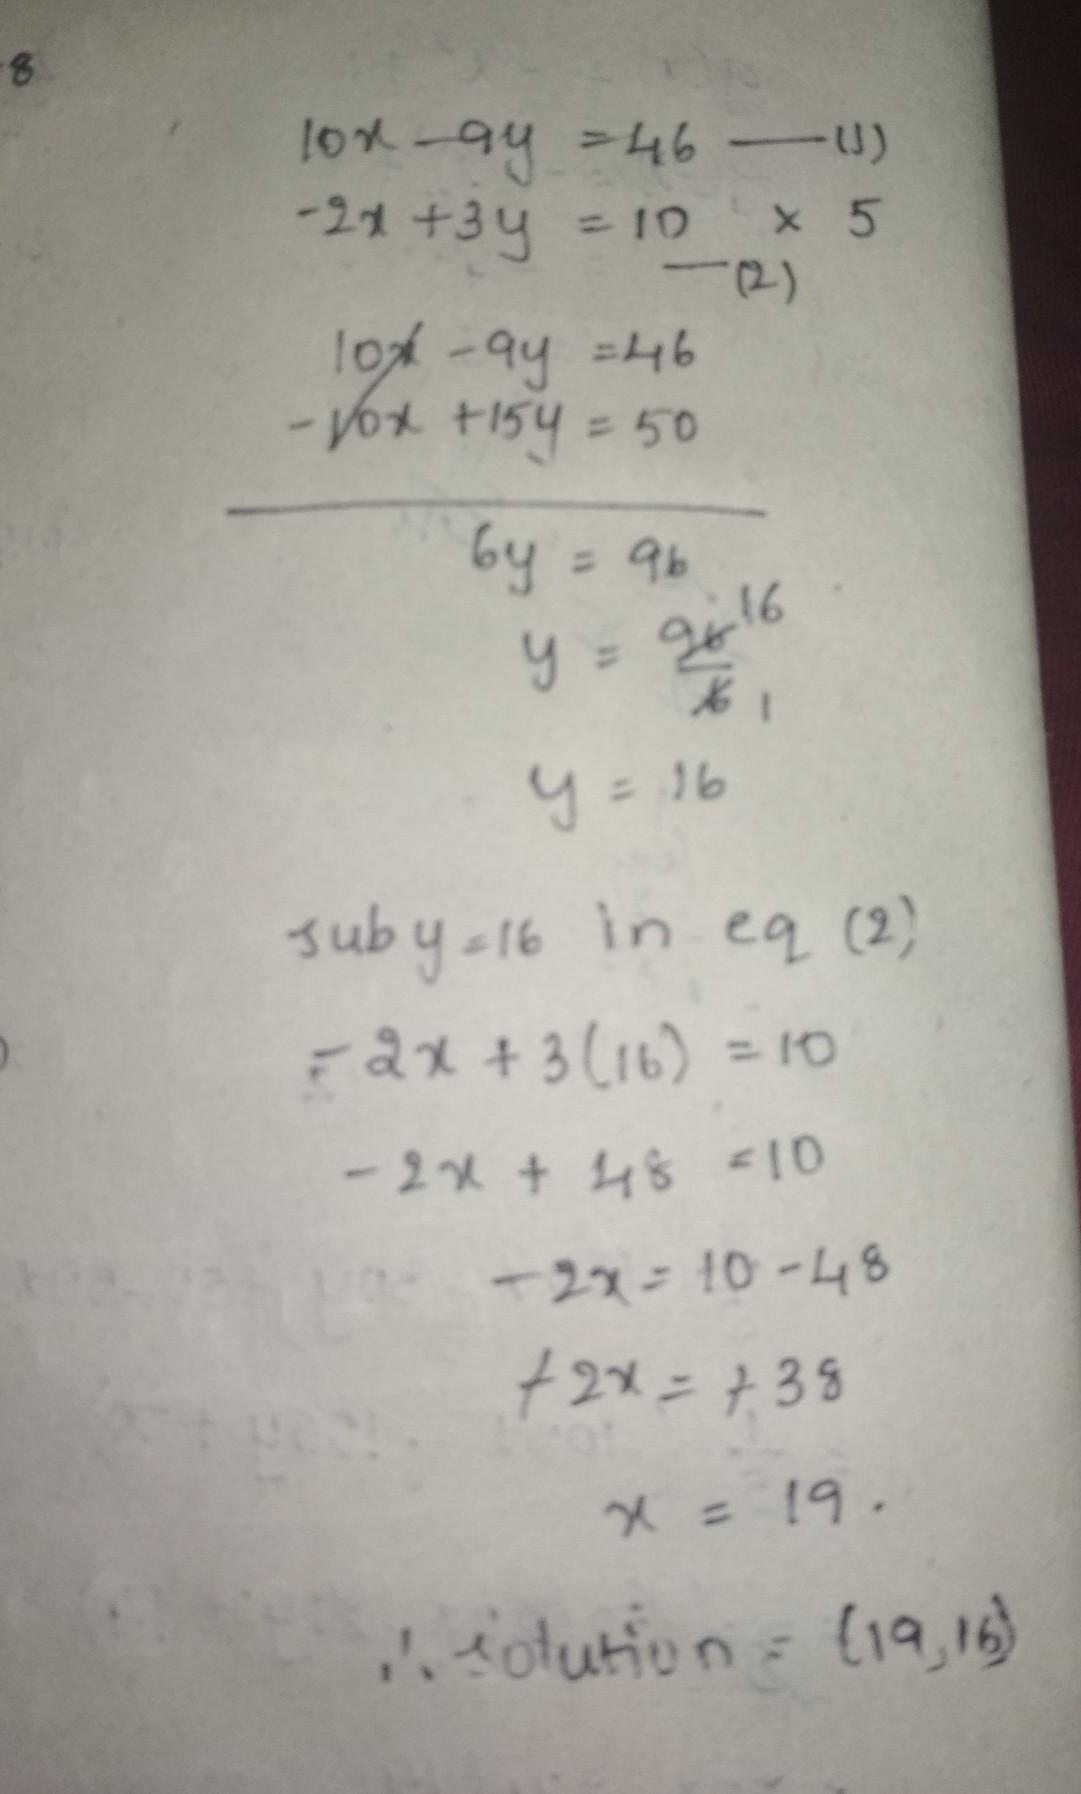 8
10x - 9y = 46 — (1)
-2x + 3y = 10 × 5
— (2)
10x - 9y = 46
-10x + 15y = 50
6y = 96
y = 96/6 16 1
y = 16
sub y = 16 in eq (2)
-2x + 3(16) = 10
-2x + 48 = 10
-2x = 10 - 48
+2x = +38
x = 19.
∴ solution = (19, 16)